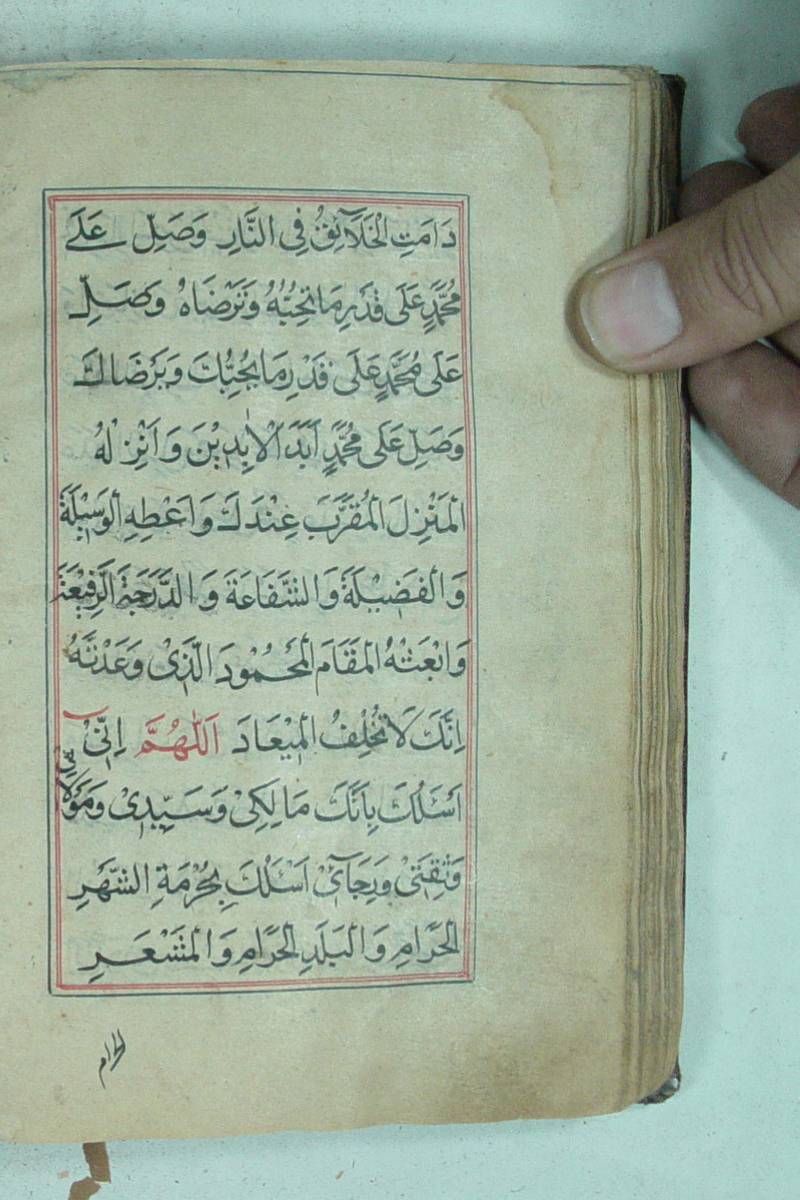 دَامَتِ الْخَلَآئِقُ فِي النَّارِ وَصَلِّ عَلَى
مُحَمَّدٍ عَلَى قَدَرِ مَا تُحِبُّهُ وَتَرْضَاهُ وَصَلِّ
عَلَى مُحَمَّدٍ عَلَى قَدْرِ مَا يُحِبُّكَ وَيَرْضَاكَ
وَصَلِّ عَلَى مُحَمَّدٍ اَبَدَ الْاٰبِدِيْنَ وَاَنْزِلْهُ
الْمَنْزِلَ الْمُقَرَّبَ عِنْدَكَ وَاَعْطِهِ الْوَسِيْلَةَ
وَالْفَضِيْلَةَ وَالشَّفَاعَةَ وَالدَّرَجَةَ الرَّفِيْعَةَ
وَابْعَثْهُ الْمَقَامَ الْمَحْمُوْدَ الَّذِىْ وَعَدْتَهُ
اِنَّكَ لَا تُخْلِفُ الْمِيْعَادَ اَللّٰهُمَّ اِنِّىْ
اَسْئَلُكَ بِاَنَّكَ مَالِكِىْ وَسَيِّدِىْ وَمَوْلَائِىْ
وَثِقَتِىْ وَرَجَآئِىْ اَسْئَلُكَ بِحُرْمَةِ الشَّهْرِ
الْحَرَامِ وَالْبَلَدِ الْحَرَامِ وَالْمَشْعَرِ
الحرام